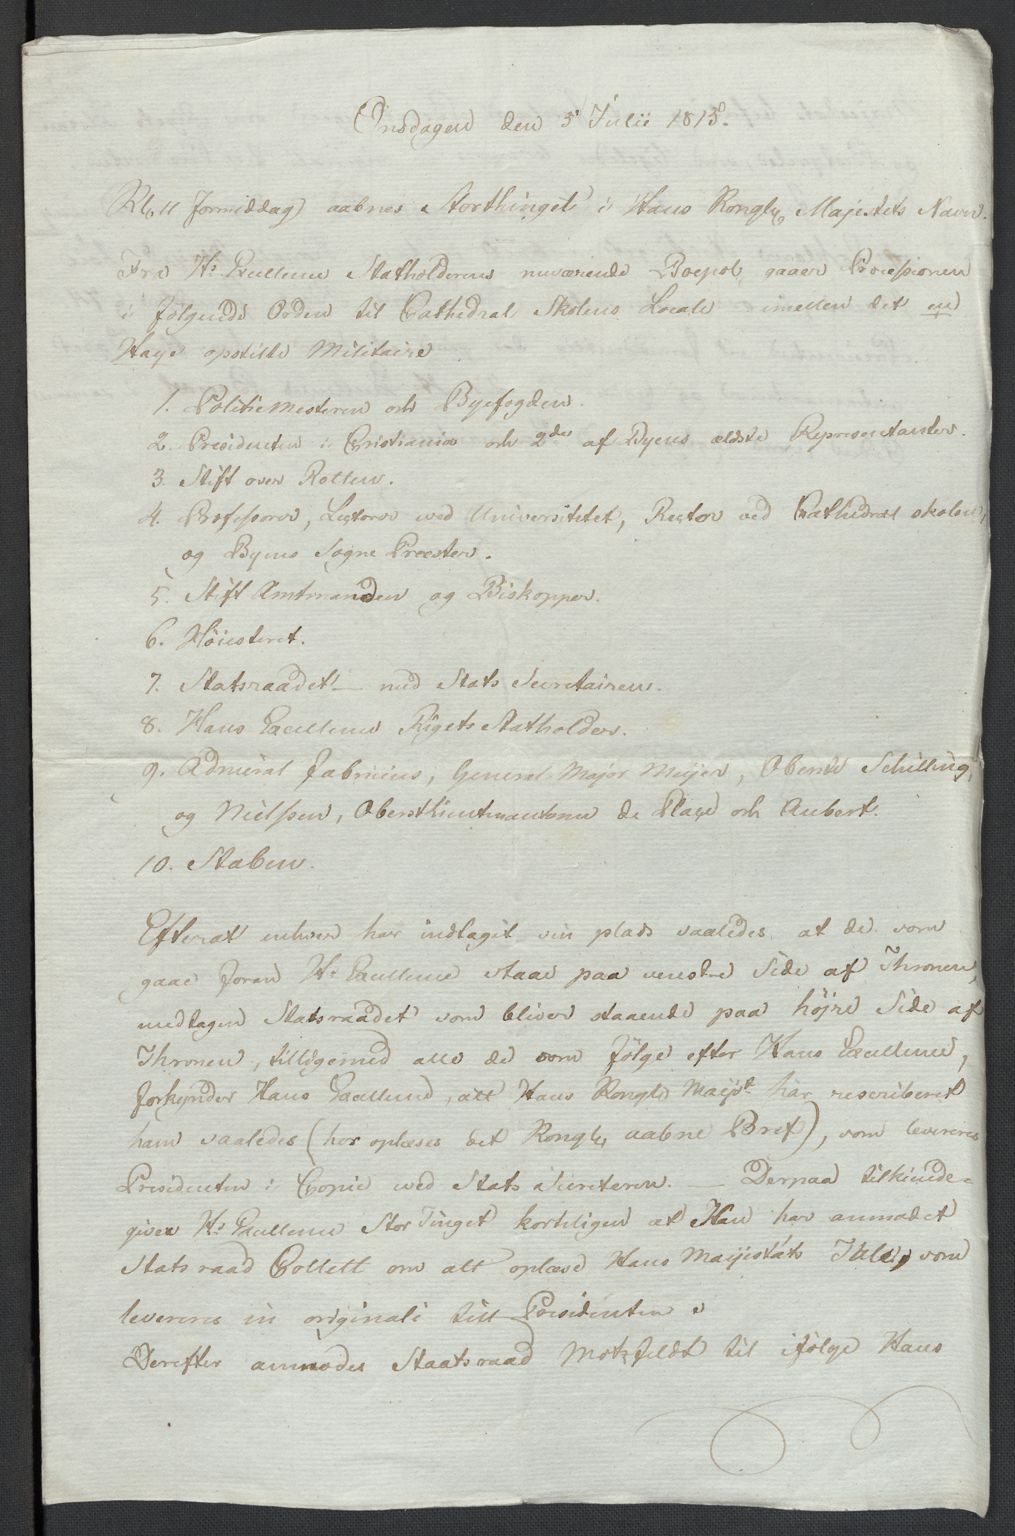 Onsdagen den 5 Julii 1815.
Kl. 11 Formiddag aabnes Storthinget i Hans Kongle Majestets Navn.
Fra Hs Excellence Statholderens nuværende Boepæl, gaaer Processionen
i følgende Orden til Cathedral Skolens Locale imellem det en
Haye opstilte Militaire
1. Politiemesteren och Byefogden.
2. Presidenten i Cristiania och 2de af Byens ældste Representanter.
3. Stift over Retten.
4. Professorer, Lectorer ved Universitetet, Rector ved Cathedral skolen,
og Byens Sogne Præster.
5. Stift Amtmanden og Biskopper.
6. Höiesteret.
7. Statsraadet — med Stats Secretairen.
8. Hans Excellence Rigets Statholder.
9. Admiral Fabricius, General Major Meijer, Oberste Schilling,
og Nielsen, Oberstlieutnanterne de Flage och Aubert.
10. Staben.
Efterat enhver har indtagit sin plads saaledes, at de som
gaae foran Hs Excellence staae paa venstre Side af Thronen,
undtagen Statsraadet som bliver staaende paa højre Side af
Thronen, tilligemed alle de som følge efter Hans Excellence,
forkynder Hans Excellence, att Hans Kongle Maijst har rescriberet
ham saaledes (her oplæses det Kongle aabne Bref), som leveres
Presidenten i Copie ved Stats Secreteren. — Derpaa tilkiende-
giver Hs Excellence Stor Tinget korteligen at Han har anmodet
Statsraad Collett om att oplæse Hans Maijestäts Tale, som
leveres in originali till Presidenten
Derefter anmodes Staatsraad Motzfeldt til ifølge Hans